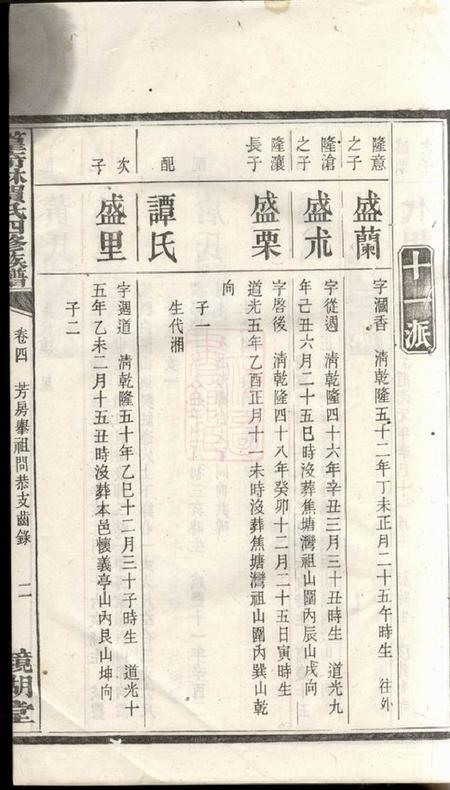 十一派
隆意之子
盛蘭
字滙香 清乾隆五十二年丁未正月二十五午時生 往外
隆滄之子
盛朮
字從週 清乾隆四十六年辛丑三月三十丑時生 道光九
年己丑六月二十五巳時沒葬焦塘灣祖山圍內辰山戌向
隆瀼長子
盛栗
字啓後 清乾隆四十八年癸卯十二月二十五日寅時生
道光五年乙酉正月十一未時沒葬焦塘灣祖山圍內巽山乾
向
子一
配
譚氏
生代湘
次子
盛里
字週道 清乾隆五十年乙巳十二月三十子時生 道光十
五年乙未二月十五丑時沒葬本邑懷義亭山內艮山坤向
子二
氏四修族譜
卷四 芳房舉祖問恭支齒錄 二
鏡湖堂